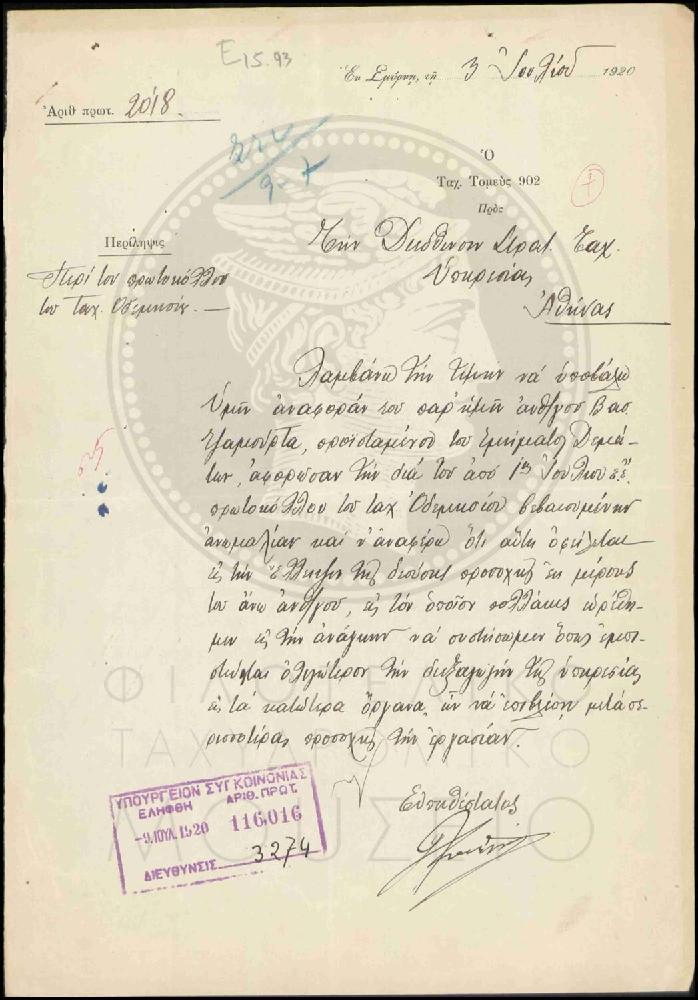 E15.93
Ἐν Σμύρνῃ, τῇ 3 Ἰουλίου 1920
Ἀριθ πρωτ. 2018.
224
9-7
Ὁ
Ταχ. Τομεὺς 902
Πρὸς
Τὴν Διεύθυνσιν Στρατ. Ταχ.
Ὑπηρεσίας
Ἀθήνας
Περίληψις
Περὶ του πρωτοκόλλου
του Ταχ. Οδεμησίου.
Λαμβάνω τὴν τιμὴν νὰ ὑποβάλω
Ὑμῖν ἀναφορὰν του παρ' ἡμῖν ἀνθ/γου Βασ.
προϊσταμένου του τμήματος Δεμά-
των, ἀφορῶσαν τὴν διὰ του ἀπὸ 1ης Ἰουλίου ἐ.ἔ.
πρωτοκόλλου του ταχ Ὀδεμησίου βεβαιουμένην
ἀνωμαλίαν καὶ ν' ἀναφέρω ὅτι αὕτη ὀφείλεται
εἰς τὴν ἔλλειψιν τῆς δεούσης προσοχῆς ἐκ μέρους
του ἄνω ἀνθ/γου, εἰς τὸν ὁποῖον πολλάκις εὑρέθη-
μεν εἰς τὴν ἀνάγκην νὰ συστήσωμεν ὅπως ἐμπι-
στεύηται ὀλιγώτερον τὴν διεξαγωγὴν τῆς ὑπηρεσίας
εἰς τὰ κατώτερα ὄργανα, καὶ νὰ ἐπιβλέπῃ μετὰ πε-
ρισσοτέρας προσοχῆς τὴν ἐργασίαν.
Εὐπειθέστατος
ΥΠΟΥΡΓΕΙΟΝ ΣΥΓΚΟΙΝΩΝΙΑΣ
ΕΛΗΦΘΗ ΑΡΙΘ. ΠΡΩΤ.
-9. ΙΟΥΛ. 1920 116016
ΔΙΕΥΘΥΝΣΙΣ 3274
ΦΙΛΟΤΕΛΙΚΟ
ΤΑΧΥΔΡΟΜΙΚΟ
ΜΟΥΣΕΙΟ